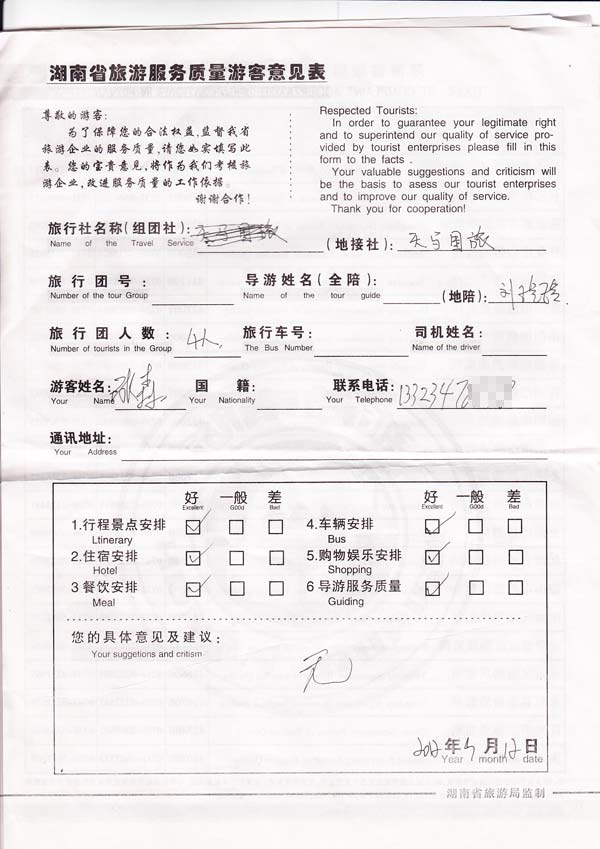 湖南省旅游服务质量游客意见表
尊敬的游客:
为了保障您的合法权益,监督我省
旅游企业的服务质量,请您如实填写此
表。您的宝贵意见,将作为我们考核旅
游企业,改进服务质量的工作依据。
谢谢合作!
Respected Tourists:
In order to guarantee your legitimate right
and to superintend our quality of service pro-
vided by tourist enterprises please fill in this
form to the facts .
Your valuable suggestions and criticism will
be the basis to asess our tourist enterprises
and to improve our quality of service.
Thank you for cooperation!
旅行社名称(组团社): (地接社): 天马国旅
Name of the Travel Service
旅行团号: 导游姓名(全陪): (地陪): 刘
Number of the tour Group Name of the tour guide
旅行团人数: 4人 旅行车号: 司机姓名:
Number of tourists in the Group The Bus Number Name of the driver
游客姓名: 国籍: 联系电话: 1332347
Your Name Your Nationality Your Telephone
通讯地址:
Your Address
好 一般 差 好 一般 差
Excellent G00d Bad Excellent G00d Bad
1.行程景点安排 4.车辆安排
Ltinerary Bus
2.住宿安排 5.购物娱乐安排
Hotel Shopping
3 餐饮安排 6 导游服务质量
Meal Guiding
您的具体意见及建议:
Your suggetions and critism
无
2012年 月12日
Year month date
湖南省旅游局监制